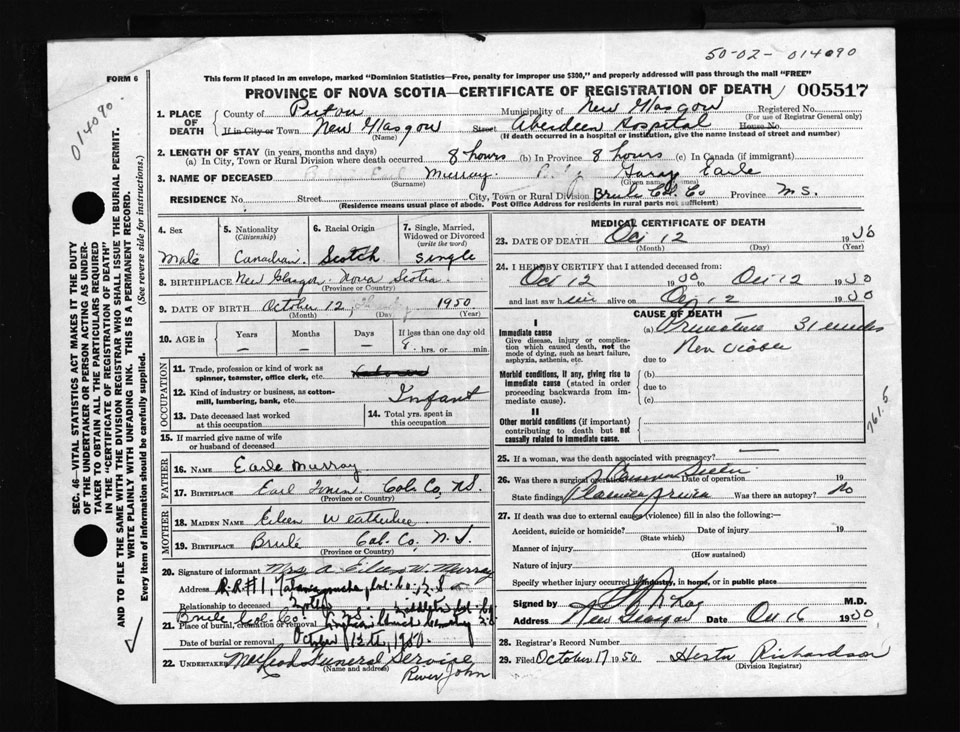 50-02-014090
014090.
FORM 6
This form if placed in an envelope, marked "Dominion Statistics—Free, penalty for improper use $300," and properly addressed will pass through the mail "FREE"
PROVINCE OF NOVA SCOTIA—CERTIFICATE OF REGISTRATION OF DEATH 005517
1. PLACE OF DEATH
County of Pictou Municipality of New Glasgow Registered No.
(For use of Registrar General only)
If in City or Town New Glasgow Street Aberdeen Hospital House No.
(Name) (If death occurred in a hospital or institution, give the name instead of street and number)
2. LENGTH OF STAY (in years, months and days)
(a) In City, Town or Rural Division where death occurred 8 hours (b) In Province 8 hours (c) In Canada (if immigrant)
3. NAME OF DECEASED Murray Garay Earle
(Surname) (Given names)
RESIDENCE No. Street City, Town or Rural Division Brule Col. Co Province N.S.
(Residence means usual place of abode. Post Office Address for residents in rural parts not sufficient)
4. Sex
Male
5. Nationality
(Citizenship)
Canadian
6. Racial Origin
Scotch
7. Single, Married, Widowed or Divorced
(write the word)
Single
8. BIRTHPLACE New Glasgow Nova Scotia
(Province or Country)
9. DATE OF BIRTH October 12 1950
(Month) (Day) (Year)
10. AGE in Years Months Days If less than one day old
8 hrs. or min.
OCCUPATION
11. Trade, profession or kind of work as spinner, teamster, office clerk, etc.
12. Kind of industry or business, as cotton-mill, lumbering, bank, etc. Infant
13. Date deceased last worked at this occupation
14. Total yrs. spent in this occupation
15. If married give name of wife or husband of deceased
FATHER
16. NAME Earle Murray
17. BIRTHPLACE Earl Col. Co, N.S.
(Province or Country)
MOTHER
18. MAIDEN NAME Eileen Weatherbee
19. BIRTHPLACE Brule Col. Co, N.S.
(Province or Country)
20. Signature of informant Mrs. A. Eileen W. Murray
Address R.R#1, Tatamagouche, Col. Co. N.S
Relationship to deceased Mother
Brule Col. Co. N.S.
21. Place of burial, cremation or removal Church Cemetery
Date of burial or removal October 13th, 1950.
22. UNDERTAKER Funeral Service
(Name and address)
River John
MEDICAL CERTIFICATE OF DEATH
23. DATE OF DEATH Oct 12 1950
(Month) (Day) (Year)
24. I HEREBY CERTIFY that I attended deceased from:
Oct 12 1950 to Oct 12 1950
and last saw him alive on Oct 12 1950
CAUSE OF DEATH
I
Immediate cause
Give disease, injury or complication which caused death, not the mode of dying, such as heart failure, asphyxia, asthenia, etc.
(a) Premature 31 weeks
Non viable
due to
Morbid conditions, if any, giving rise to immediate cause (stated in order proceeding backwards from immediate cause).
(b)
due to
(c)
II
Other morbid conditions (if important) contributing to death but not causally related to immediate cause.
761.5
25. If a woman, was the death associated with pregnancy?
26. Was there a surgical operation? Date of operation 19
State findings Placenta Previa Was there an autopsy? No
27. If death was due to external causes (violence) fill in also the following:—
Accident, suicide or homicide? Date of injury 19
(State which)
Manner of injury
(How sustained)
Nature of injury
Specify whether injury occurred in industry, in home, or in public place
Signed by M.D.
Address New Glasgow Oct 16 1950
28. Registrar's Record Number
29. Filed October 17 1950 Hester Richardson
(Division Registrar)
SEC. 46—VITAL STATISTICS ACT MAKES IT THE DUTY
OF THE UNDERTAKER OR PERSON ACTING AS UNDER-
TAKER TO OBTAIN ALL THE PARTICULARS REQUIRED
IN THE "CERTIFICATE OF REGISTRATION OF DEATH"
AND TO FILE THE SAME WITH THE DIVISION REGISTRAR WHO SHALL ISSUE THE BURIAL PERMIT.
WRITE PLAINLY WITH UNFADING INK. THIS IS A PERMANENT RECORD.
Every item of information should be carefully supplied. (See reverse side for instructions.)